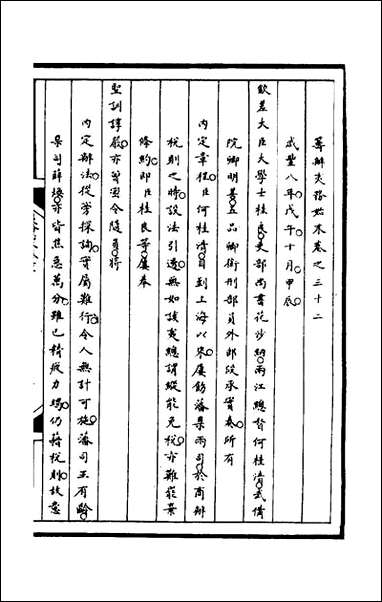 籌辦夷務始末卷之三十二
咸豐八年戊午十月甲辰
欽差大臣大學士桂良吏部尚書花沙納兩江總督何桂清武備
院卿明善五品卿銜刑部員外郎段承實奏所有
內定章程臣何桂清自到上海以來屢飭藩臬兩司於商辦
稅則之時設法引逗無如該夷總謂縱能免稅亦難罷棄
條約即臣桂良等屢奉
聖訓諄嚴亦曾密令隨員將
內定辦法從旁探詢守局難行令人無計可施藩司王有齡
臬司薛煥亦皆焦急萬分雖已精疲力竭仍藉稅則故意